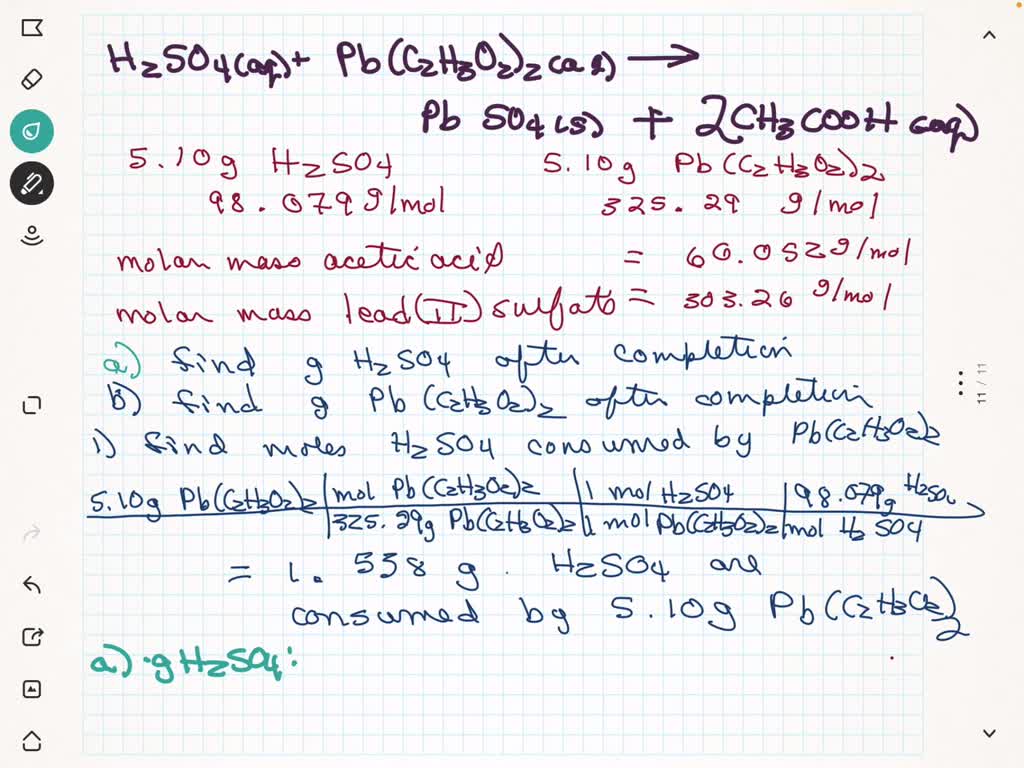 H2SO4(aq) + Pb(C2H3O2)2(aq) →
PbSO4(s) + 2CH3COOH(aq)
5.10g H2SO4 5.10g Pb(C2H3O2)2
98.079 g/mol 325.29 g/mol
molar mass acetic acid = 60.052 g/mol
molar mass lead(II) sulfate = 303.26 g/mol
a) find g H2SO4 after completion
b) find g Pb(C2H3O2)2 after completion
1) find moles H2SO4 consumed by Pb(C2H3O2)2
5.10g Pb(C2H3O2)2 | mol Pb(C2H3O2)2 | 1 mol H2SO4 | 98.079g H2SO4
325.29g Pb(C2H3O2)2 | 1 mol Pb(C2H3O2)2 | mol H2SO4
= 1.538 g H2SO4 are
consumed by 5.10g Pb(C2H3O2)2
a) g H2SO4:
11 / 11